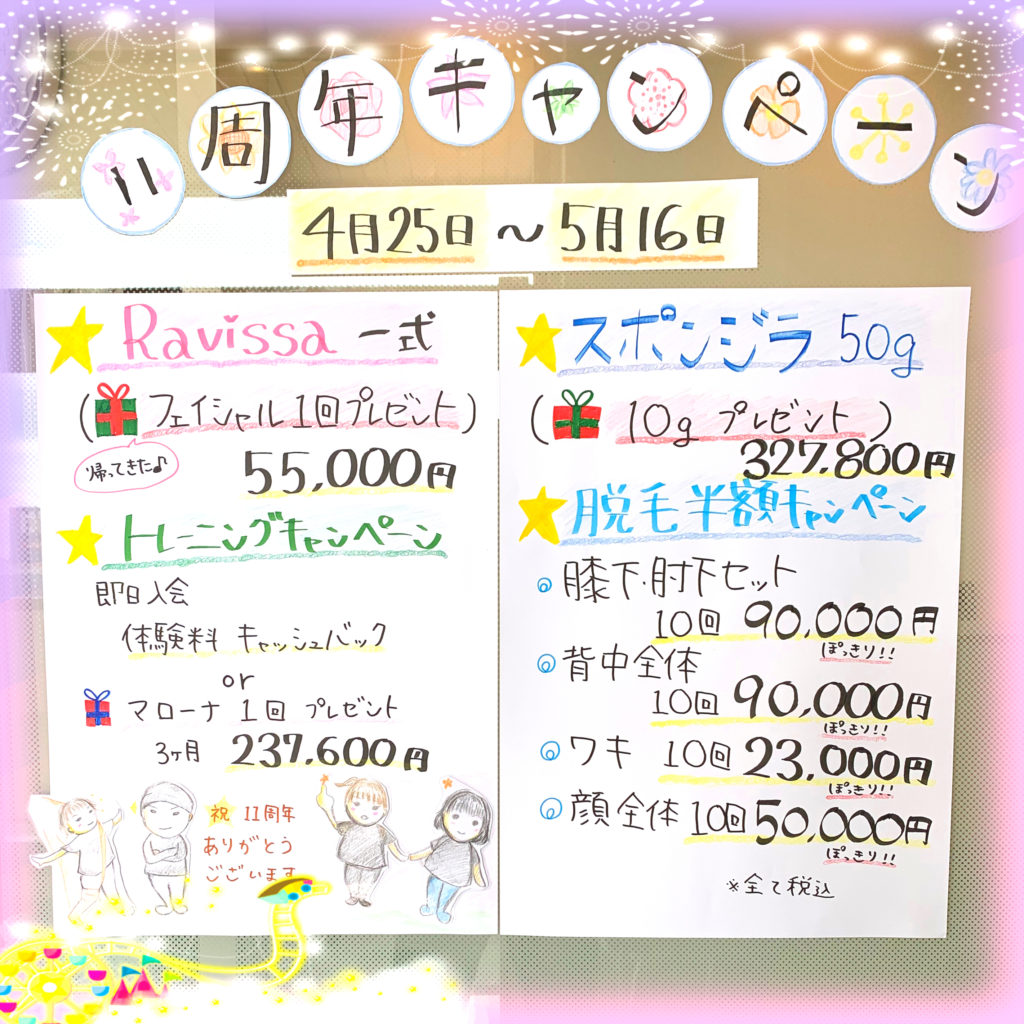 11周年キャンペーン
4月25日～5月16日
Ravissa 一式
(フェイシャル1回プレゼント)
帰ってきた♪
55,000円
トレーニングキャンペーン
即日入会
体験料 キャッシュバック
or
マローナ 1回 プレゼント
3ヶ月 237,600円
祝 11周年
ありがとう
ございます
スポンジラ 50g
(10g プレゼント)
327,800円
脱毛半額キャンペーン
膝下・肘下セット
10回 90,000円
ぽっきり!!
背中全体
10回 90,000円
ぽっきり!!
ワキ 10回 23,000円
ぽっきり!!
顔全体 10回 50,000円
ぽっきり!!
※全て税込